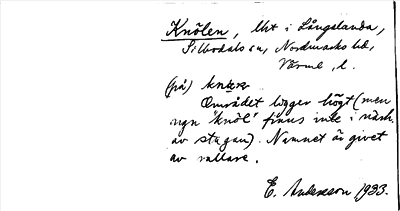 Knölen, lht i Långelanda,
Silbodals sn, Nordmarks hd,
Värml. l.
(på)
Området ligger högt (men
ngn "knöl" finns inte i närh.
av stugan). Namnet är givet
av rallare.
E. Andersson 1933.